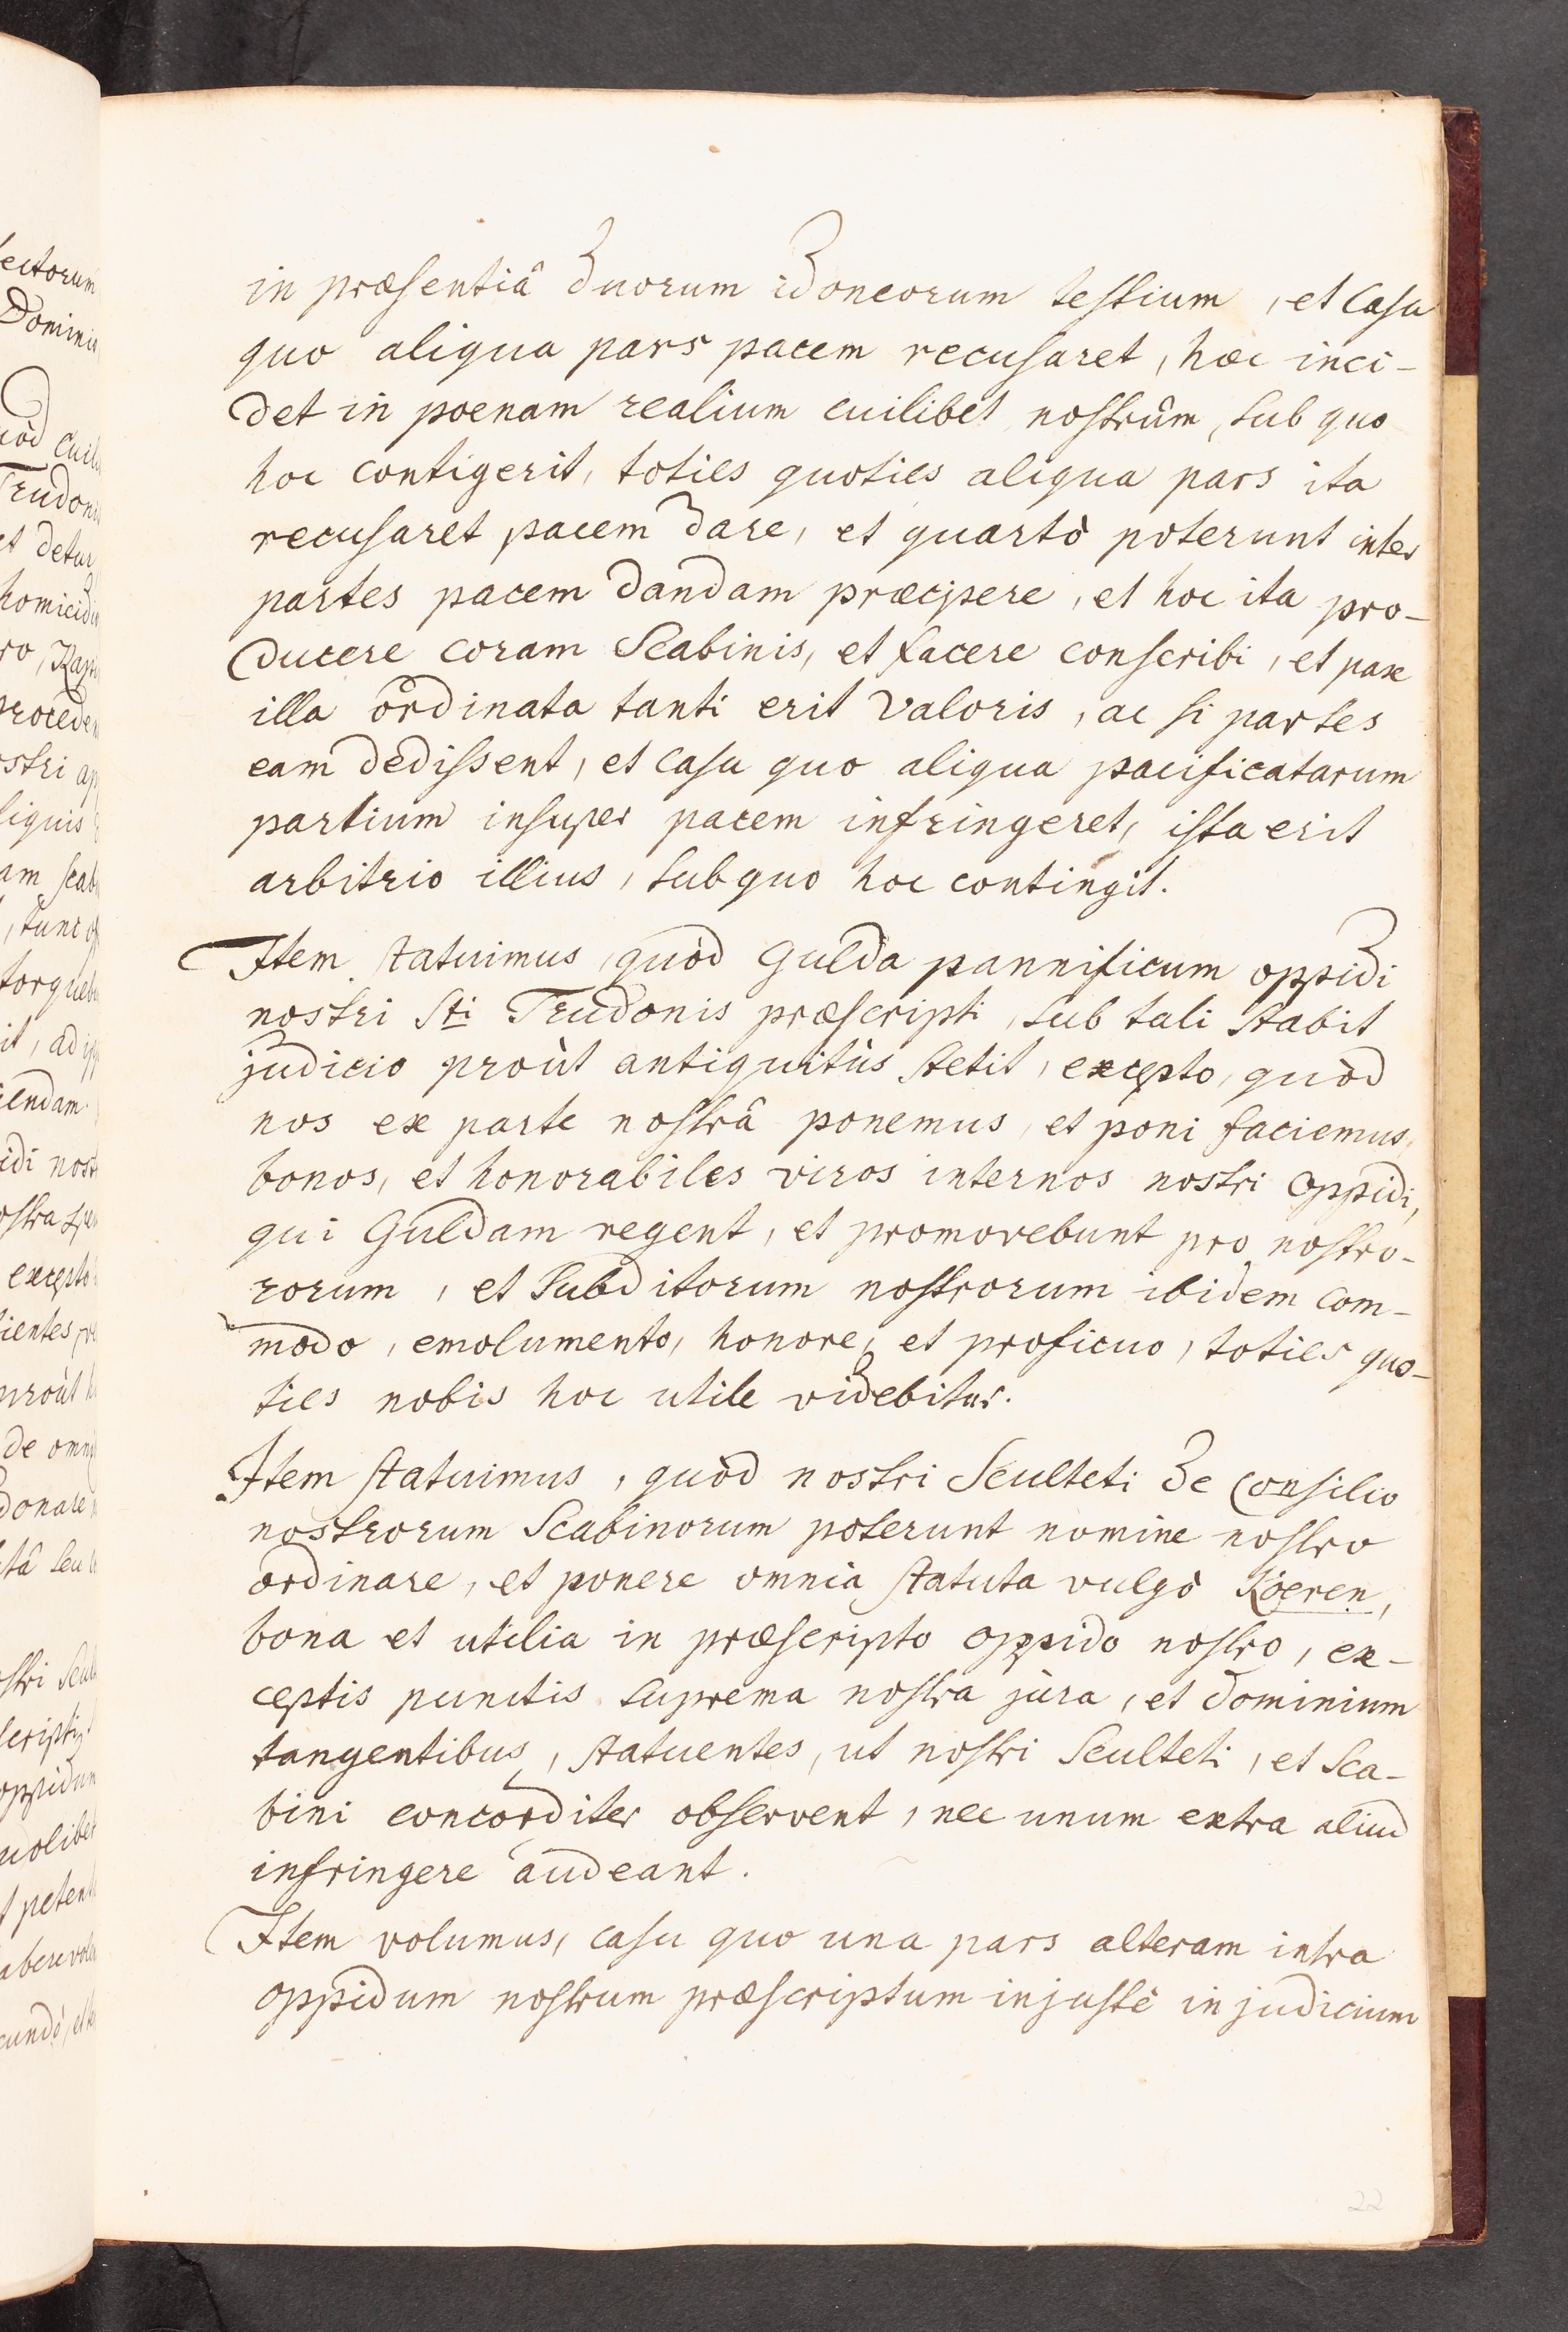 in præsentiâ duorum idoneorum testium, et casu
quo aliqua pars pacem recusaret, hæc inci-
det in poenam realium cuilibet nostrûm, sub quo
hoc contigerit, toties quoties aliqua pars ita
recusaret pacem dare, et quartò poterunt inter
partes pacem dandam præcipere, et hoc ita pro-
ducere coram Scabinis, et facere conscribi, et pax
illa ordinata tanti erit valoris, ac si partes
eam dedissent, et casu quo aliqua pacificatarum
partium insuper pacem infringeret, ista erit
arbitrio illius, sub quo hoc contingit.
Item statuimus, quòd Gulda pannificum oppidi
nostri Sti Trudonis præscripti, sub tali stabit
judicio proùt antiquitùs stetit, excepto, quòd
nos ex parte nostrâ ponemus, et poni faciemus,
bonos, et honorabiles viros internos nostri oppidi,
qui Guldam regent, et promovebunt pro nostro-
rorum, et subditorum nostrorum ibidem com-
modo, emolumento, honore, et proficuo, toties quo-
ties nobis hoc utile videbitur.
Item statuimus, quòd nostri Sculteti de Consilio
nostrorum Scabinorum poterunt nomine nostro
ordinare, et ponere omnia statuta vulgò Koeren,
bona et utilia in præscripto oppido nostro, ex-
ceptis punctis suprema nostra jura, et dominium
tangentibus, statuentes, ut nostri Sculteti, et Sca-
bini concorditer observent, nec unum extra aliud
infringere audeant.
Item volumus, casu quo una pars alteram intra
oppidum nostrum præscriptum injustè in judicium
22